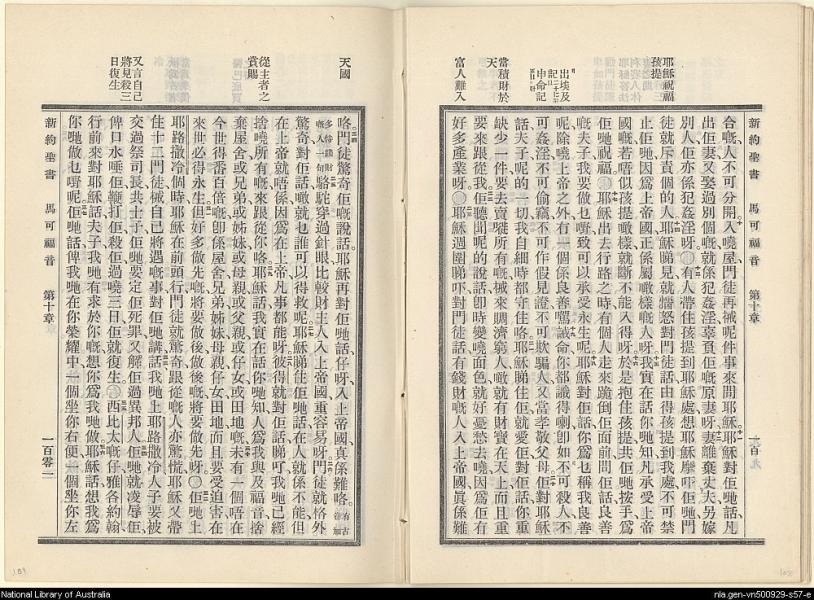 耶穌祝福
孩提
出埃及
記
申命記
當積財於
天
富人難入
新約聖書 馬可福音 第十章
合嘅人不可分開入嘵屋門徒再捄呢件事來問耶穌耶穌對佢哋話凡
出佢妻又娶過別個嘅就係犯姦淫辜負佢嘅原妻呀妻離棄丈夫另嫁
別人佢亦係犯姦淫呀〇有人帶住孩提到耶穌處想耶穌摩吓佢哋門
徒就斥責個的人耶穌睇見就嬲怒對門徒話由得孩提到我處不可禁
止佢哋因爲上帝國正係屬噉樣嘅人呀我實在話你哋知凡承受上帝
國嘅若唔似孩提噉樣就斷不能入得呀於是抱住孩提共佢哋按手爲
佢哋祝福〇耶穌出去行路之時有個人走來跪倒佢面前問佢話良善
嘅夫子我要做乜嘢致可以承受永生呢耶穌對佢話你爲乜稱我良善
呢除嘵上帝之外有一個係良善嘅誡命你都識得喇卽如不可殺人不
可姦淫不可偷竊不可作假見證不可欺騙人又當孝敬父母佢對耶穌
話夫子呢的一切我自細時都守住咯耶穌睇住佢就愛佢對佢話你重
缺少一件要去賣哂所有嘅捄來賙濟窮人噉就有財寶在天上而且重
要來跟從我佢聽聞呢的說話卽時變嘵面色就好憂愁去嘵因爲佢有
好多產業呀〇耶穌週圍睇吓對門徒話有錢財嘅人入上帝國眞係難
天國
從主者之
賞賜
又言自己
將見殺三
日復生
咯門徒驚奇佢嘅說話耶穌再對佢哋話仔呀入上帝國真係難咯
駱駝穿過針眼比較財主人入上帝國重容易呀門徒就格外
驚奇對佢話噉就乜誰可以得救呢耶穌睇住佢哋話在人就係不能但
在上帝就唔係因爲在上帝凡事都能呀彼得就對佢話睇吓我哋已經
捨嘵所有嘅來跟從你咯耶穌話我實在話你哋知人爲我與及福音捨
棄屋舍或兄弟或姊妹或母親或父親或仔女或田地嘅未有一個唔在
今世得番百倍嘅卽係屋舍兄弟姊妹母親仔女田地而且要受迫害在
來世必得永生但好多做先嘅將要做後做後嘅將要做先呀〇佢哋上
耶路撒冷個時耶穌在前頭行門徒就驚奇跟從嘅人亦驚慌耶穌又帶
住十二門徒捄自己將遇嘅事對佢哋講話我哋上耶路撒冷人子要被
交過祭司長共士子佢哋要定佢死罪又解佢過異邦人佢哋就凌辱佢
俾口水唾佢鞭打佢殺佢過嘵三日佢就復生〇西比太嘅仔雅各約翰
行前來對耶穌話夫子我哋有求於你嘅想你爲我哋做耶穌話想我爲
你哋做乜嘢呢佢哋話俾我哋在你榮耀中一個坐你右便一個坐你左
新約聖書 馬可福音 第十章 一百零一
National Library of Australia
nla.gen-vn500929-s57-e